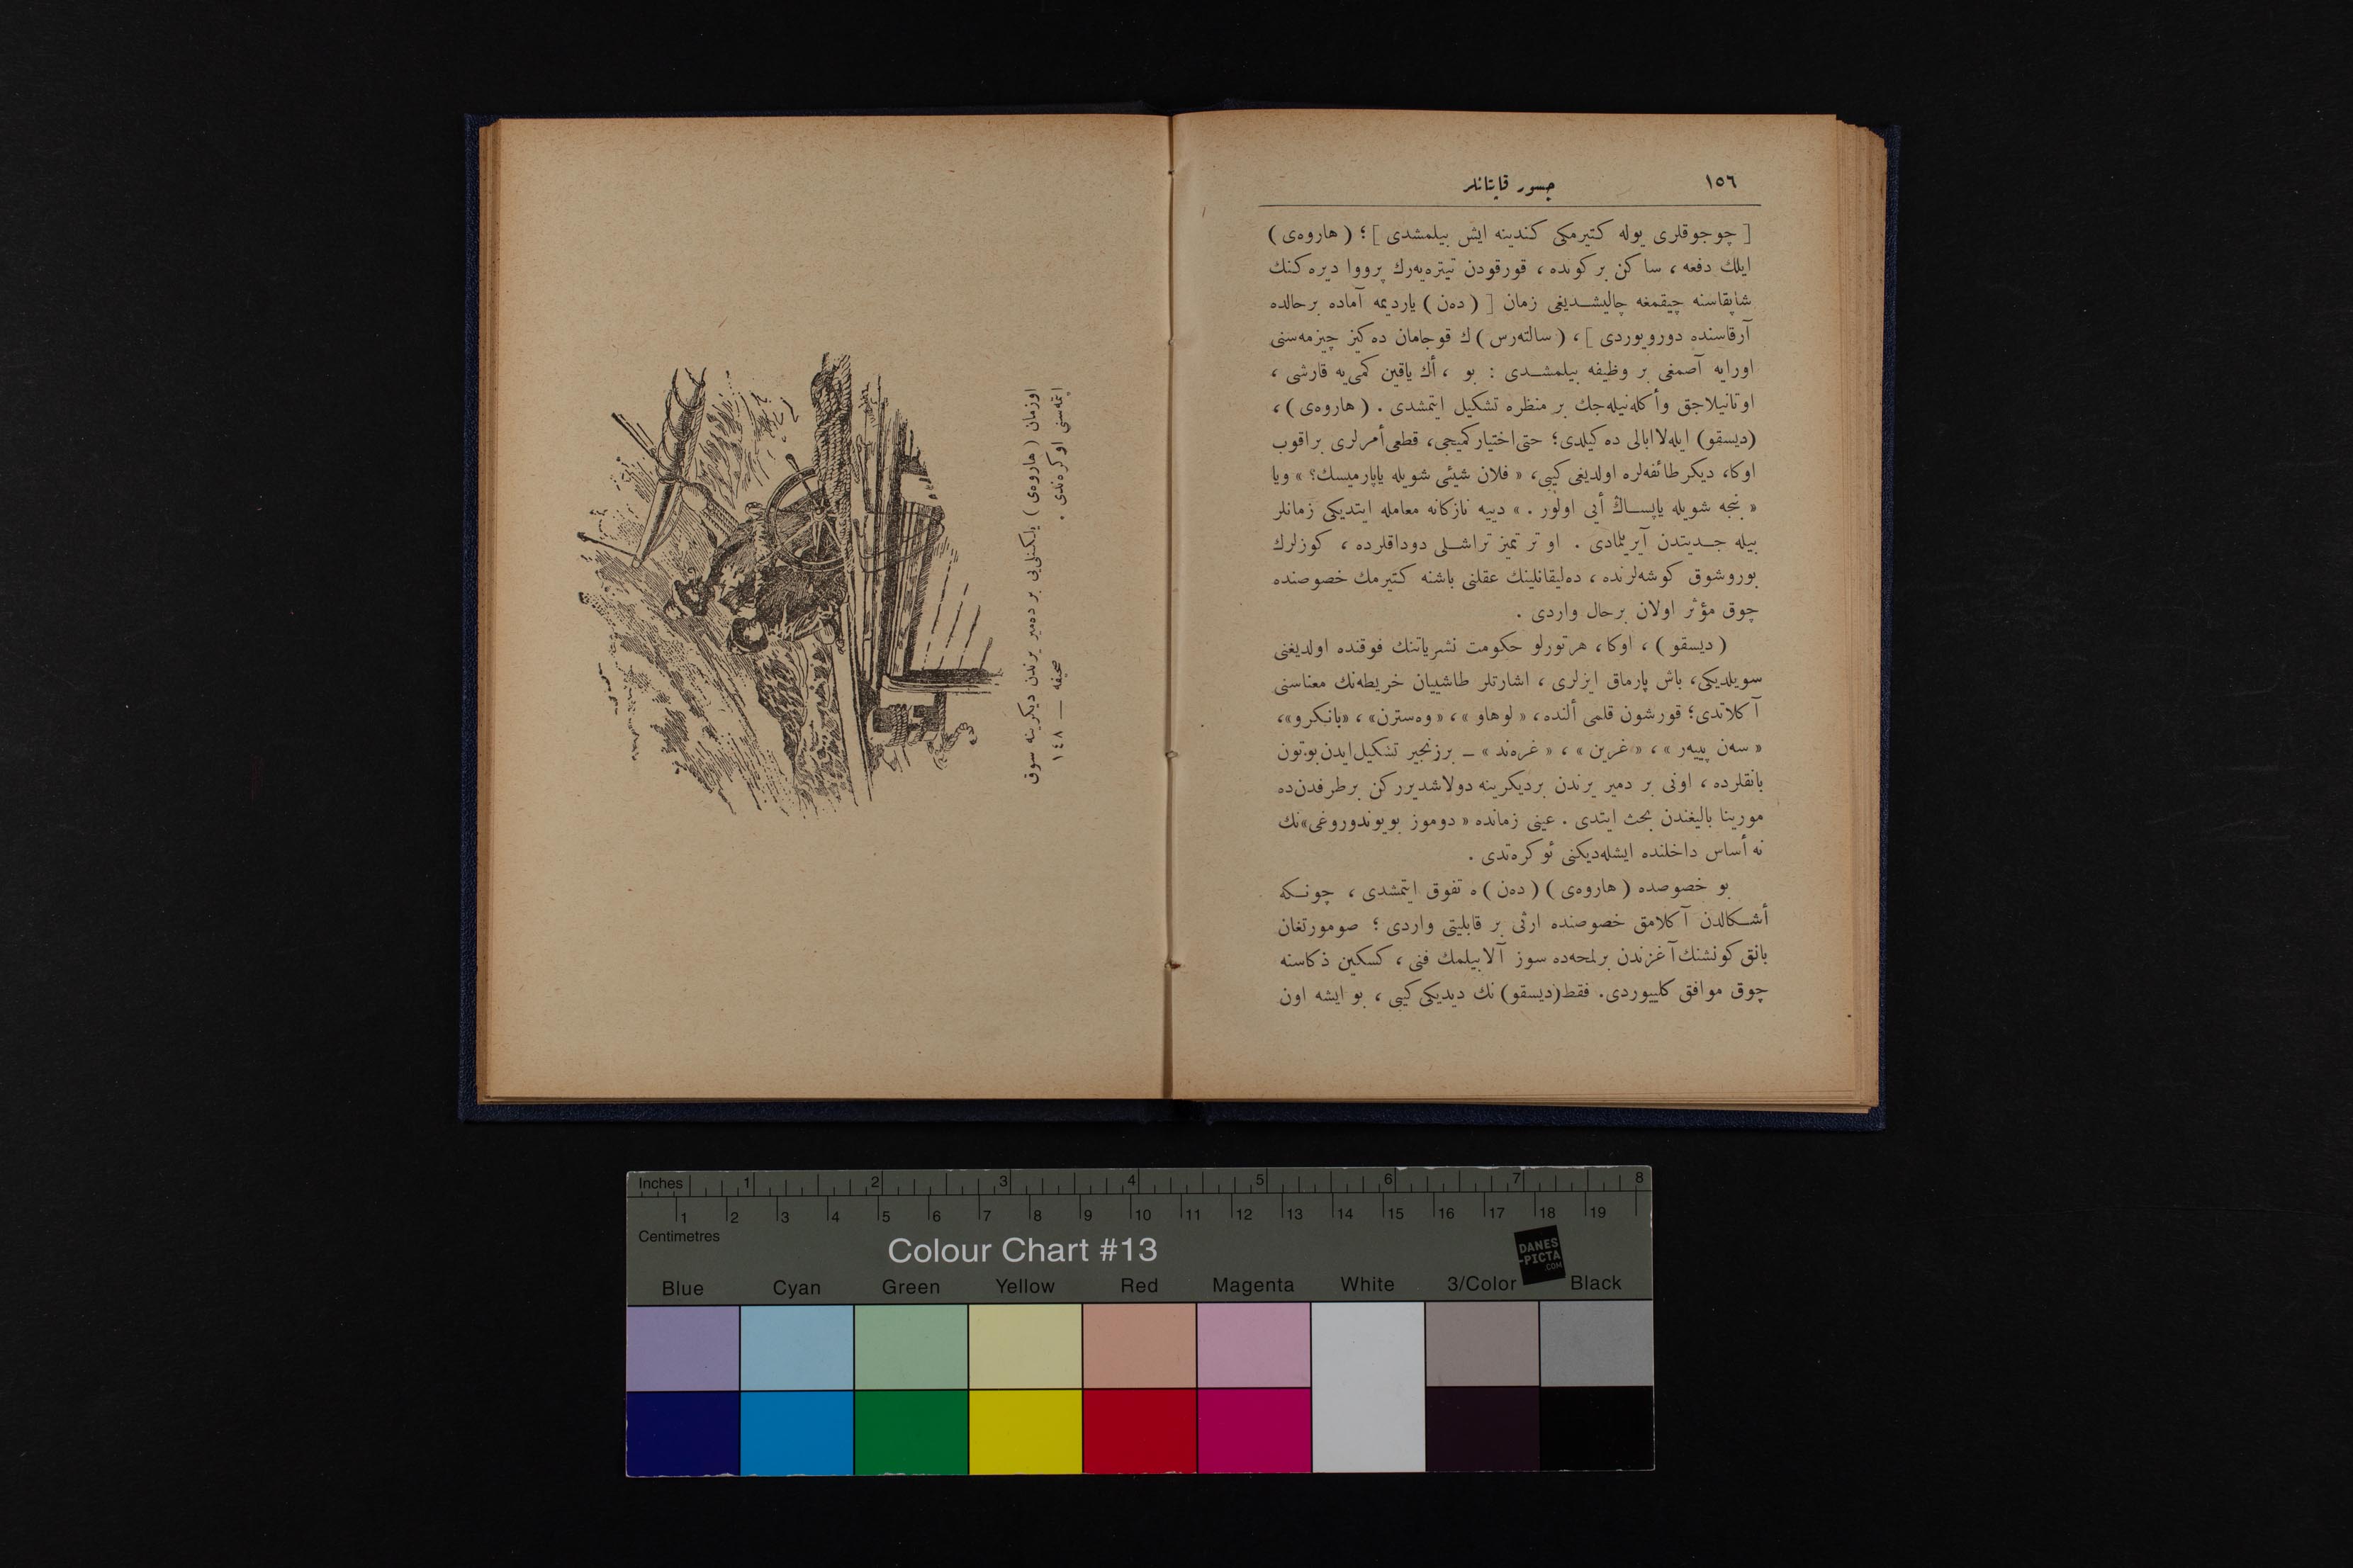 ١٥٦
جسور قاپتانلر
[ چوجوقلری یوله کتیرمکی کندینه ایش بیلمشدی ] ؛ ( هاروەی )
ایلك دفعه ، ساکن بر کونده ، قورقودن تیترەیەرك پرووا دیره کنك
شاپقاسنه چیقمغه چالیشدیغی زمان [ ( دەن ) یاردیمه آماده برحالده
آرقاسنده دورویوردی ] ، ( سالتەرس ) ك قوجامان دەکیز چیزمەسنی
اورایه آصمغی بر وظیفه بیلمشدی : بو ، أك یاقین کمی‌یه قارشی ،
اوتانیلاجق وأکلەنیلەجك بر منظره تشکیل ایتمشدی . ( هاروەی ) ،
(دیسقو) ایله لاابالی دەکیلدی؛ حتی اختیار کمیجی، قطعی أمرلری براقوب
اوکا، دیکر طائفەلره اولدیغی کیبی، « فلان شیئی شویله یاپارمیسك؟ » ویا
« بنجه شویله یاپساڭ أیی اولور . » دییه نازکانه معامله ایتدیکی زمانلر
بیله جدیتدن آیریلمادی . او تر تمیز تراشلی دوداقلرده ، کوزلرك
بوروشوق کوشەلرنده ، دەلیقانلینك عقلنی باشنه کتیرمك خصوصنده
چوق مؤثر اولان برحال واردی .
( دیسقو ) ، اوکا، هرتورلو حکومت نشریاتنك فوقنده اولدیغنی
سویلدیکی، باش پارماق ایزلری ، اشارتلر طاشییان خریطەنك معناسنی
آکلاتدی؛ قورشون قلمی ألنده، « لوهاو »، « وەسترن» ، «بانکرو»،
« سەن پییەر » ، « غرین » ، « غرەند » ـ برزنجیر تشکیل ایدن بوتون
بانقلرده ، اونی بر دمیر یرندن بردیکرینه دولاشدیررکن برطرفدن‌ده
مورینا بالیغندن بحث ایتدی . عینی زمانده « دوموز بویوندوروغی»نك
نه أساس داخلنده ایشلەدیکنی ئوکرەتدی .
بو خصوصده ( هاروەی ) ( دەن ) ە تفوق ایتمشدی ، چونکه
أشکالدن آکلامق خصوصنده ارثی بر قابلیتی واردی ؛ صومورتغان
بانق کونشنك آغزندن برلمحەده سوز آلابیلمك فنی ، کسکین ذکاسنه
چوق موافق کلییوردی. فقط (دیسقو) نك دیدیکی کیبی ، بو ایشه اون
اوزمان ( هاروەی ) یلکنلی‌یی بر دەمیر یرندن دیکرینه سوق
ایتمەسنی اوکرەندی .
صحیفه — ١٤٨
Inches 1 2 3 4 5 6 7 8
1 2 3 4 5 6 7 8 9 10 11 12 13 14 15 16 17 18 19
Centimetres
Colour Chart #13
DANES
-PICTA
.COM
Blue Cyan Green Yellow Red Magenta White 3/Color Black